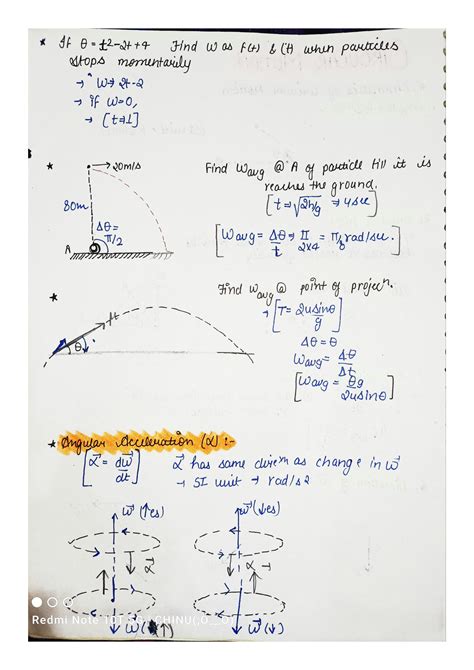 * If θ = t²-2t+4 Find ω as f(t) & (t) when particles
stops momentarily
→ ω → 2t-2
→ if ω=0,
→ [t⇒1]
* →20m/s
80m
Δθ =
π/2
A
Find ωavg @ A of particle till it is
reaches the ground.
[t ⇒ √2h/g ⇒ 4sec]
[ωavg = Δθ/t ⇒ π/2×4 = π/8 rad/sec.]
*
θ
Find ωavg @ point of projecn.
→ [T = 2usinθ/g]
Δθ = θ
ωavg = Δθ/Δt
[ωavg = θg/2usinθ]
* Angular Acceleration (α) :-
[α⃗ = dω⃗/dt]
α⃗ has same direcn as change in ω⃗
→ SI unit → rad/s2
ω⃗(↑es)
ω⃗(↓es)
α⃗
α⃗
ω⃗(↑)
ω⃗(↓)
Redmi Note 10T 5G